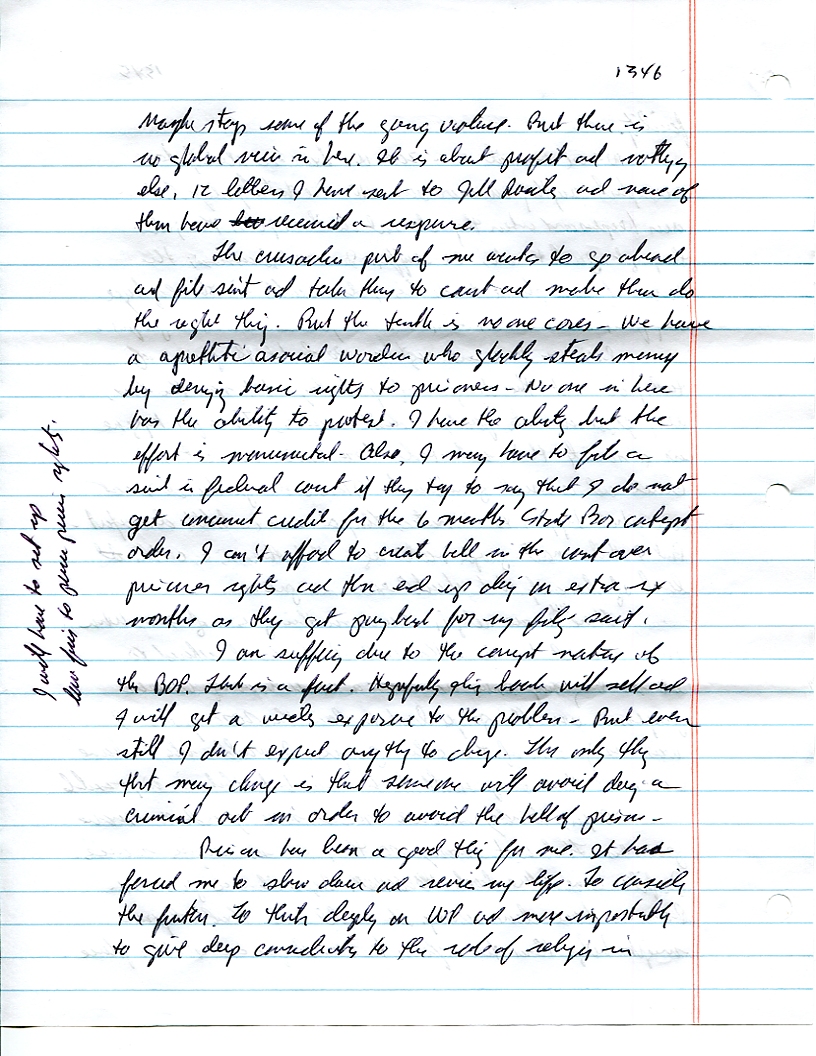 1346
Maybe stop some of the gang violence. But there is
no global view in here. It is about profit ad nothing
else. 12 letters I have sent to Jill and none of
them have received a response.
The crusader part of me wants to go ahead
ad file suit ad take them to court ad make them do
the right thing. But the truth is no one cares - We have
a apathetic asocial warden who gladly steals money
by denying basic rights to prisoners - No one in here
has the ability to protest. I have the ability but the
effort is monumental. Also, I may have to file a
suit in federal court if they try to say that I do not
get concurrent credit for the 6 months State contempt
order. I can't afford to create hell in the court over
prisoner rights ad then end up doing an extra six
months as they get payback for my filing suit.
I am suffering due to the corrupt nature of
the BOP. That is a fact. Hopefully this book will sell ad
I will get a exposure to the problem - But even
still I don't expect anything to change. The only thing
that may change is that someone will avoid doing a
criminal act in order to avoid the hell of prison -
Prison has been a good thing for me. It has
forced me to slow down ad review my life. To consider
the future. To think deeply on WP ad more importantly
to give deep to the role of religion in
I will have to set up
law firm to prison rights.